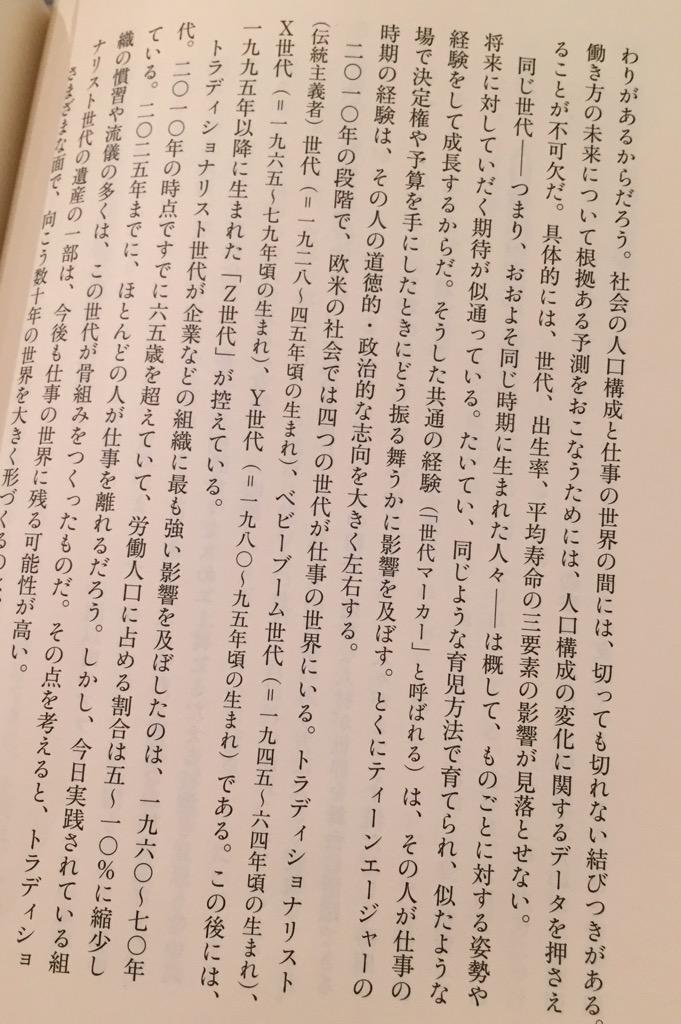 わりがあるからだろう。社会の人口構成と仕事の世界の間には、切っても切れない結びつきがある。
働き方の未来について根拠ある予測をおこなうためには、人口構成の変化に関するデータを押さえ
ることが不可欠だ。具体的には、世代、出生率、平均寿命の三要素の影響が見落とせない。
同じ世代――つまり、おおよそ同じ時期に生まれた人々――は概して、ものごとに対する姿勢や
将来に対していだく期待が似通っている。たいてい、同じような育児方法で育てられ、似たような
経験をして成長するからだ。そうした共通の経験（「世代マーカー」と呼ばれる）は、その人が仕事の
場で決定権や予算を手にしたときにどう振る舞うかに影響を及ぼす。とくにティーンエージャーの
時期の経験は、その人の道徳的・政治的な志向を大きく左右する。
二〇一〇年の段階で、欧米の社会では四つの世代が仕事の世界にいる。トラディショナリスト
（伝統主義者）世代（＝一九二八～四五年頃の生まれ）、ベビーブーム世代（＝一九四五～六四年頃の生まれ）、
X世代（＝一九六五～七九年頃の生まれ）、Y世代（＝一九八〇～九五年頃の生まれ）である。この後には、
一九九五年以降に生まれた「Z世代」が控えている。
トラディショナリスト世代が企業などの組織に最も強い影響を及ぼしたのは、一九六〇～七〇年
代。二〇一〇年の時点ですでに六五歳を超えていて、労働人口に占める割合は五～一〇%に縮少し
ている。二〇二五年までに、ほとんどの人が仕事を離れるだろう。しかし、今日実践されている組
織の慣習や流儀の多くは、この世代が骨組みをつくったものだ。その点を考えると、トラディショ
ナリスト世代の遺産の一部は、今後も仕事の世界に残る可能性が高い。
さまざまな面で、向こう数十年の世界を大きく形づくるのは、